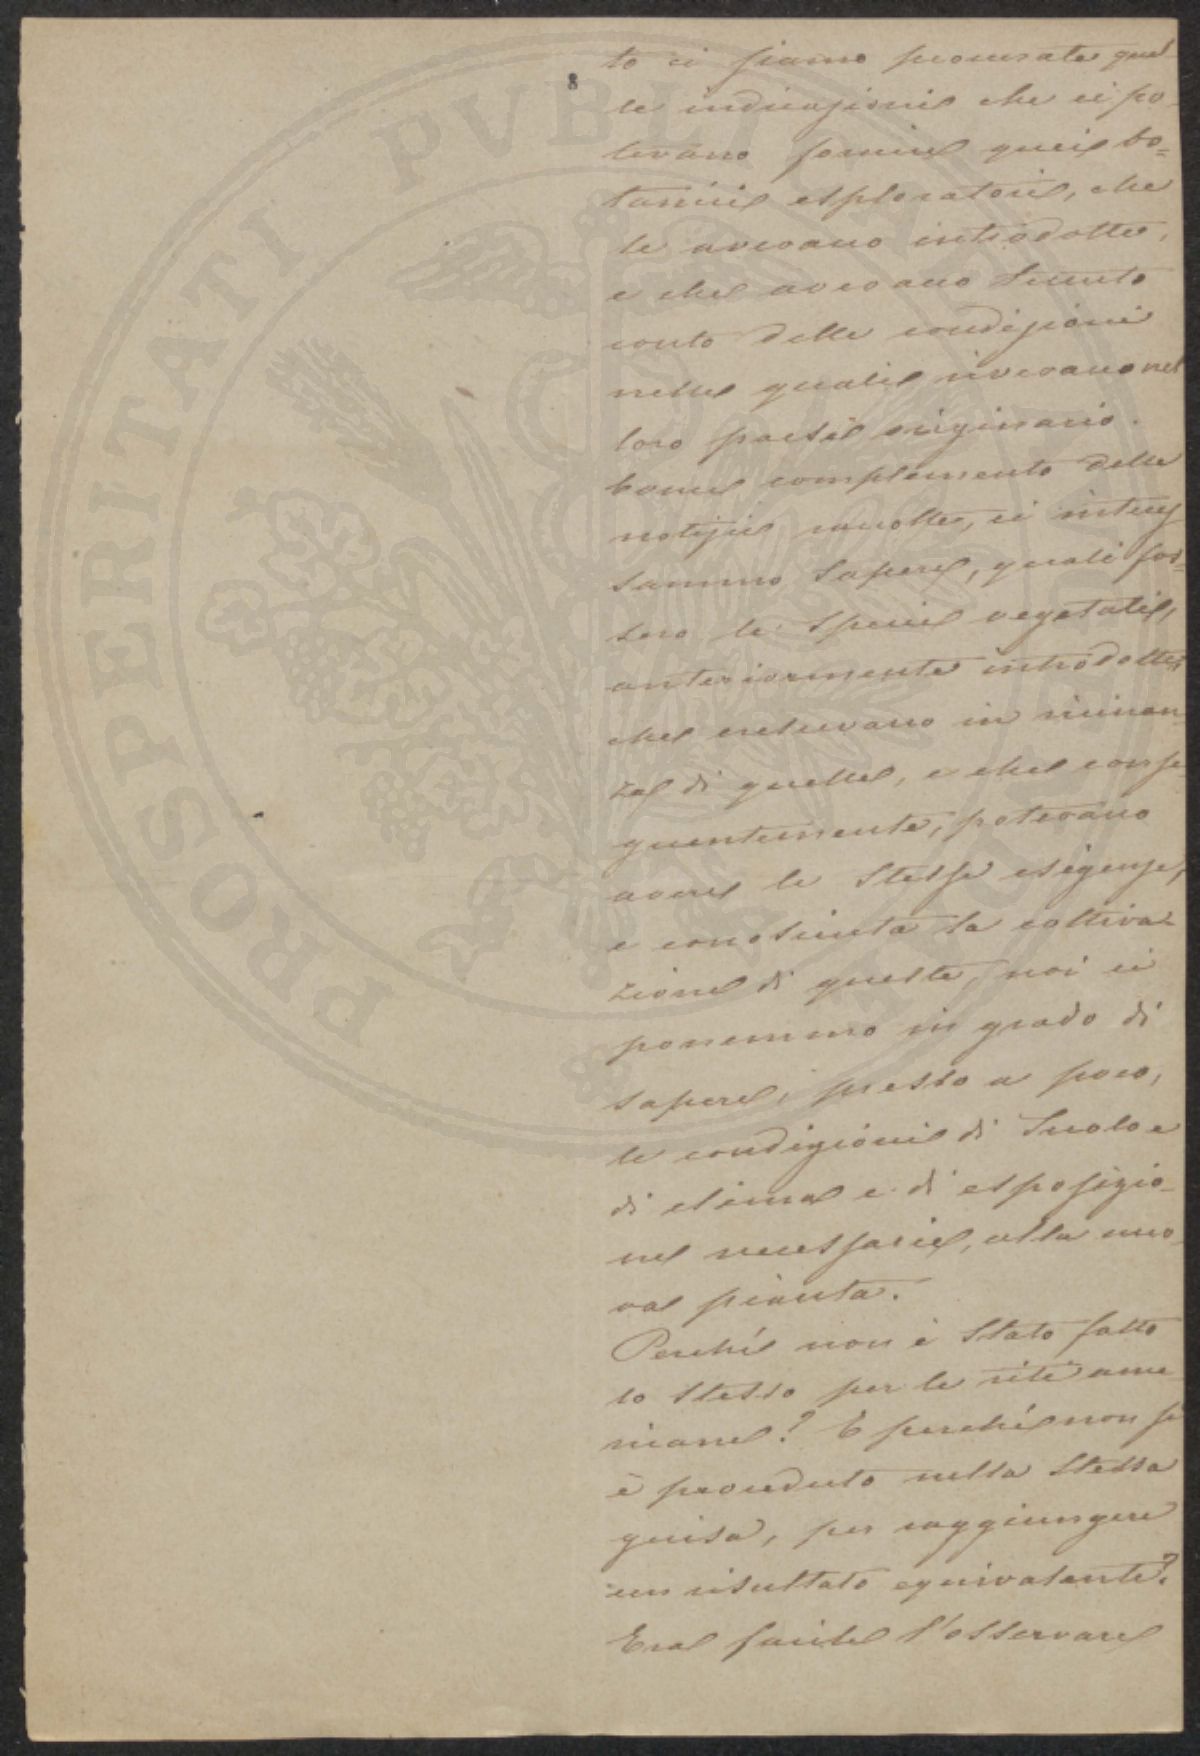 to ci siamo procurate quel-
le indicazioni che ci po-
tevano fornire quei bo=
tanici esploratori, che
le avevano introdotte,
e che avevano tenuto
conto delle condizioni
nelle quali vivevano nel
loro paese originario.
Come complemento delle
notizie raccolte, ci interes
sammo sapere, quali fos-
sero le specie vegetali,
anteriormente introdotte,
che crescevano in vicinan-
za di quelle, e che conse
guentemente, potevano
avere le stesse esigenze,
e conosciuta la coltiva-
zione di queste, noi ci
ponemmo in grado di
sapere, presso a poco,
le condizioni di suolo e
di clima e di esposizio-
ne necessarie, alla nuo-
va pianta.
Perché non è stato fatto
lo stesso per le viti ame-
ricane? E perché non si
è proceduto nella stessa
guisa, per raggiungere
un risultato equivalente?
Era facile l'osservare
PROSPERITATI PVBLICAE